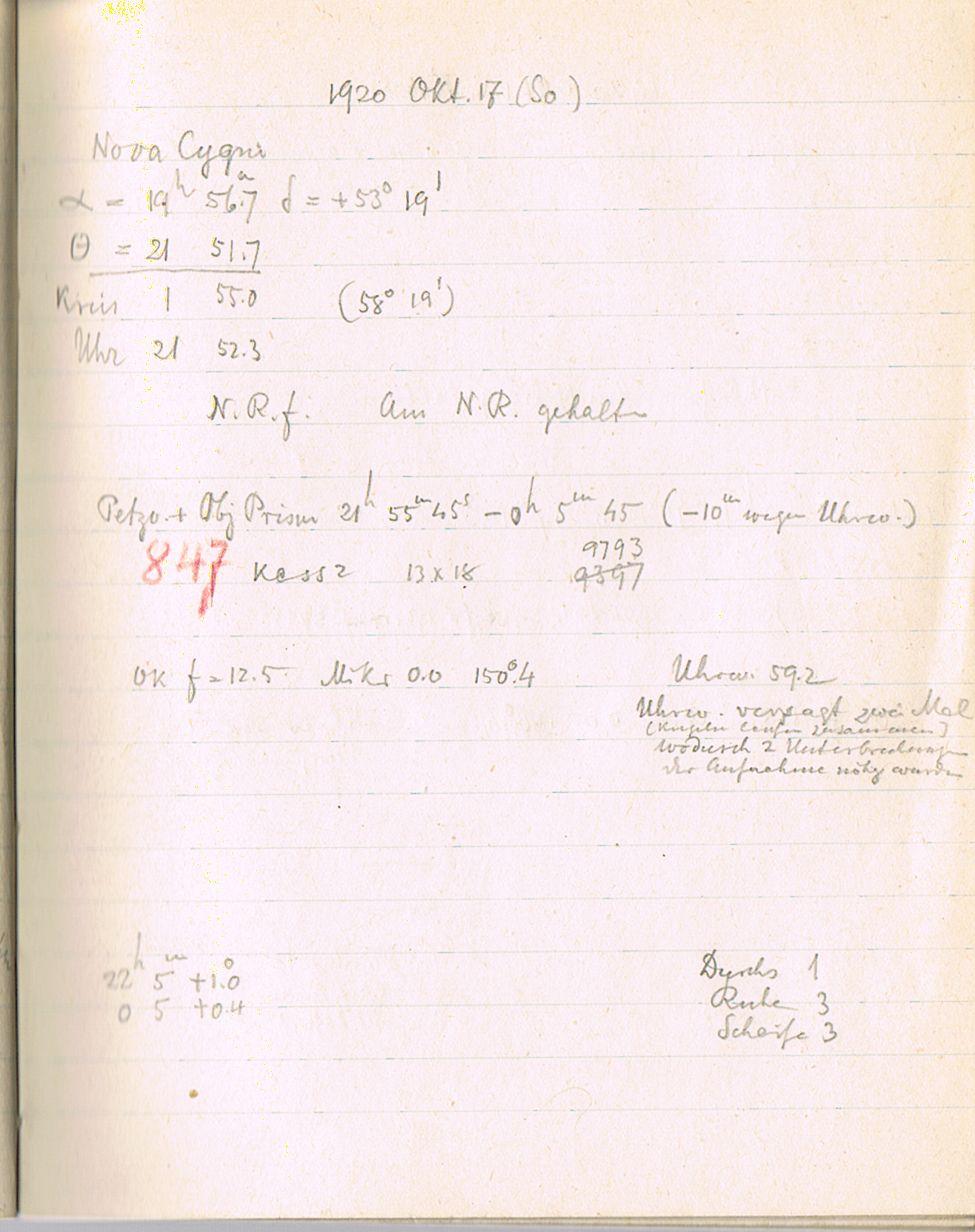 1920 Okt. 17 (So.)
Nova Cygni
α = 19h 56m.7 δ = +53° 19'
θ = 21 51.7
Kreis 1 55.0 (58° 19')
Uhr 21 52.3
N.R.f. Am N.R. gehalten
Petzv. + Obj Prism 21h 55m 45s – 0h 5m 45 (–10m wegen Uhrw.)
9793
847 Kass 2 13 x 18 9397
OK f = 12.5 Mikr 0.0 150°.4 Uhrw. 59.2
Uhrw. versagt zwei Mal
(Kugeln laufen zusammen)
wodurch 2 Unterbrechungen
der Aufnahme nötig wurden
22h 5m +1.°0 Durchs 1
0 5 +0.4 Ruhe 3
Schärfe 3